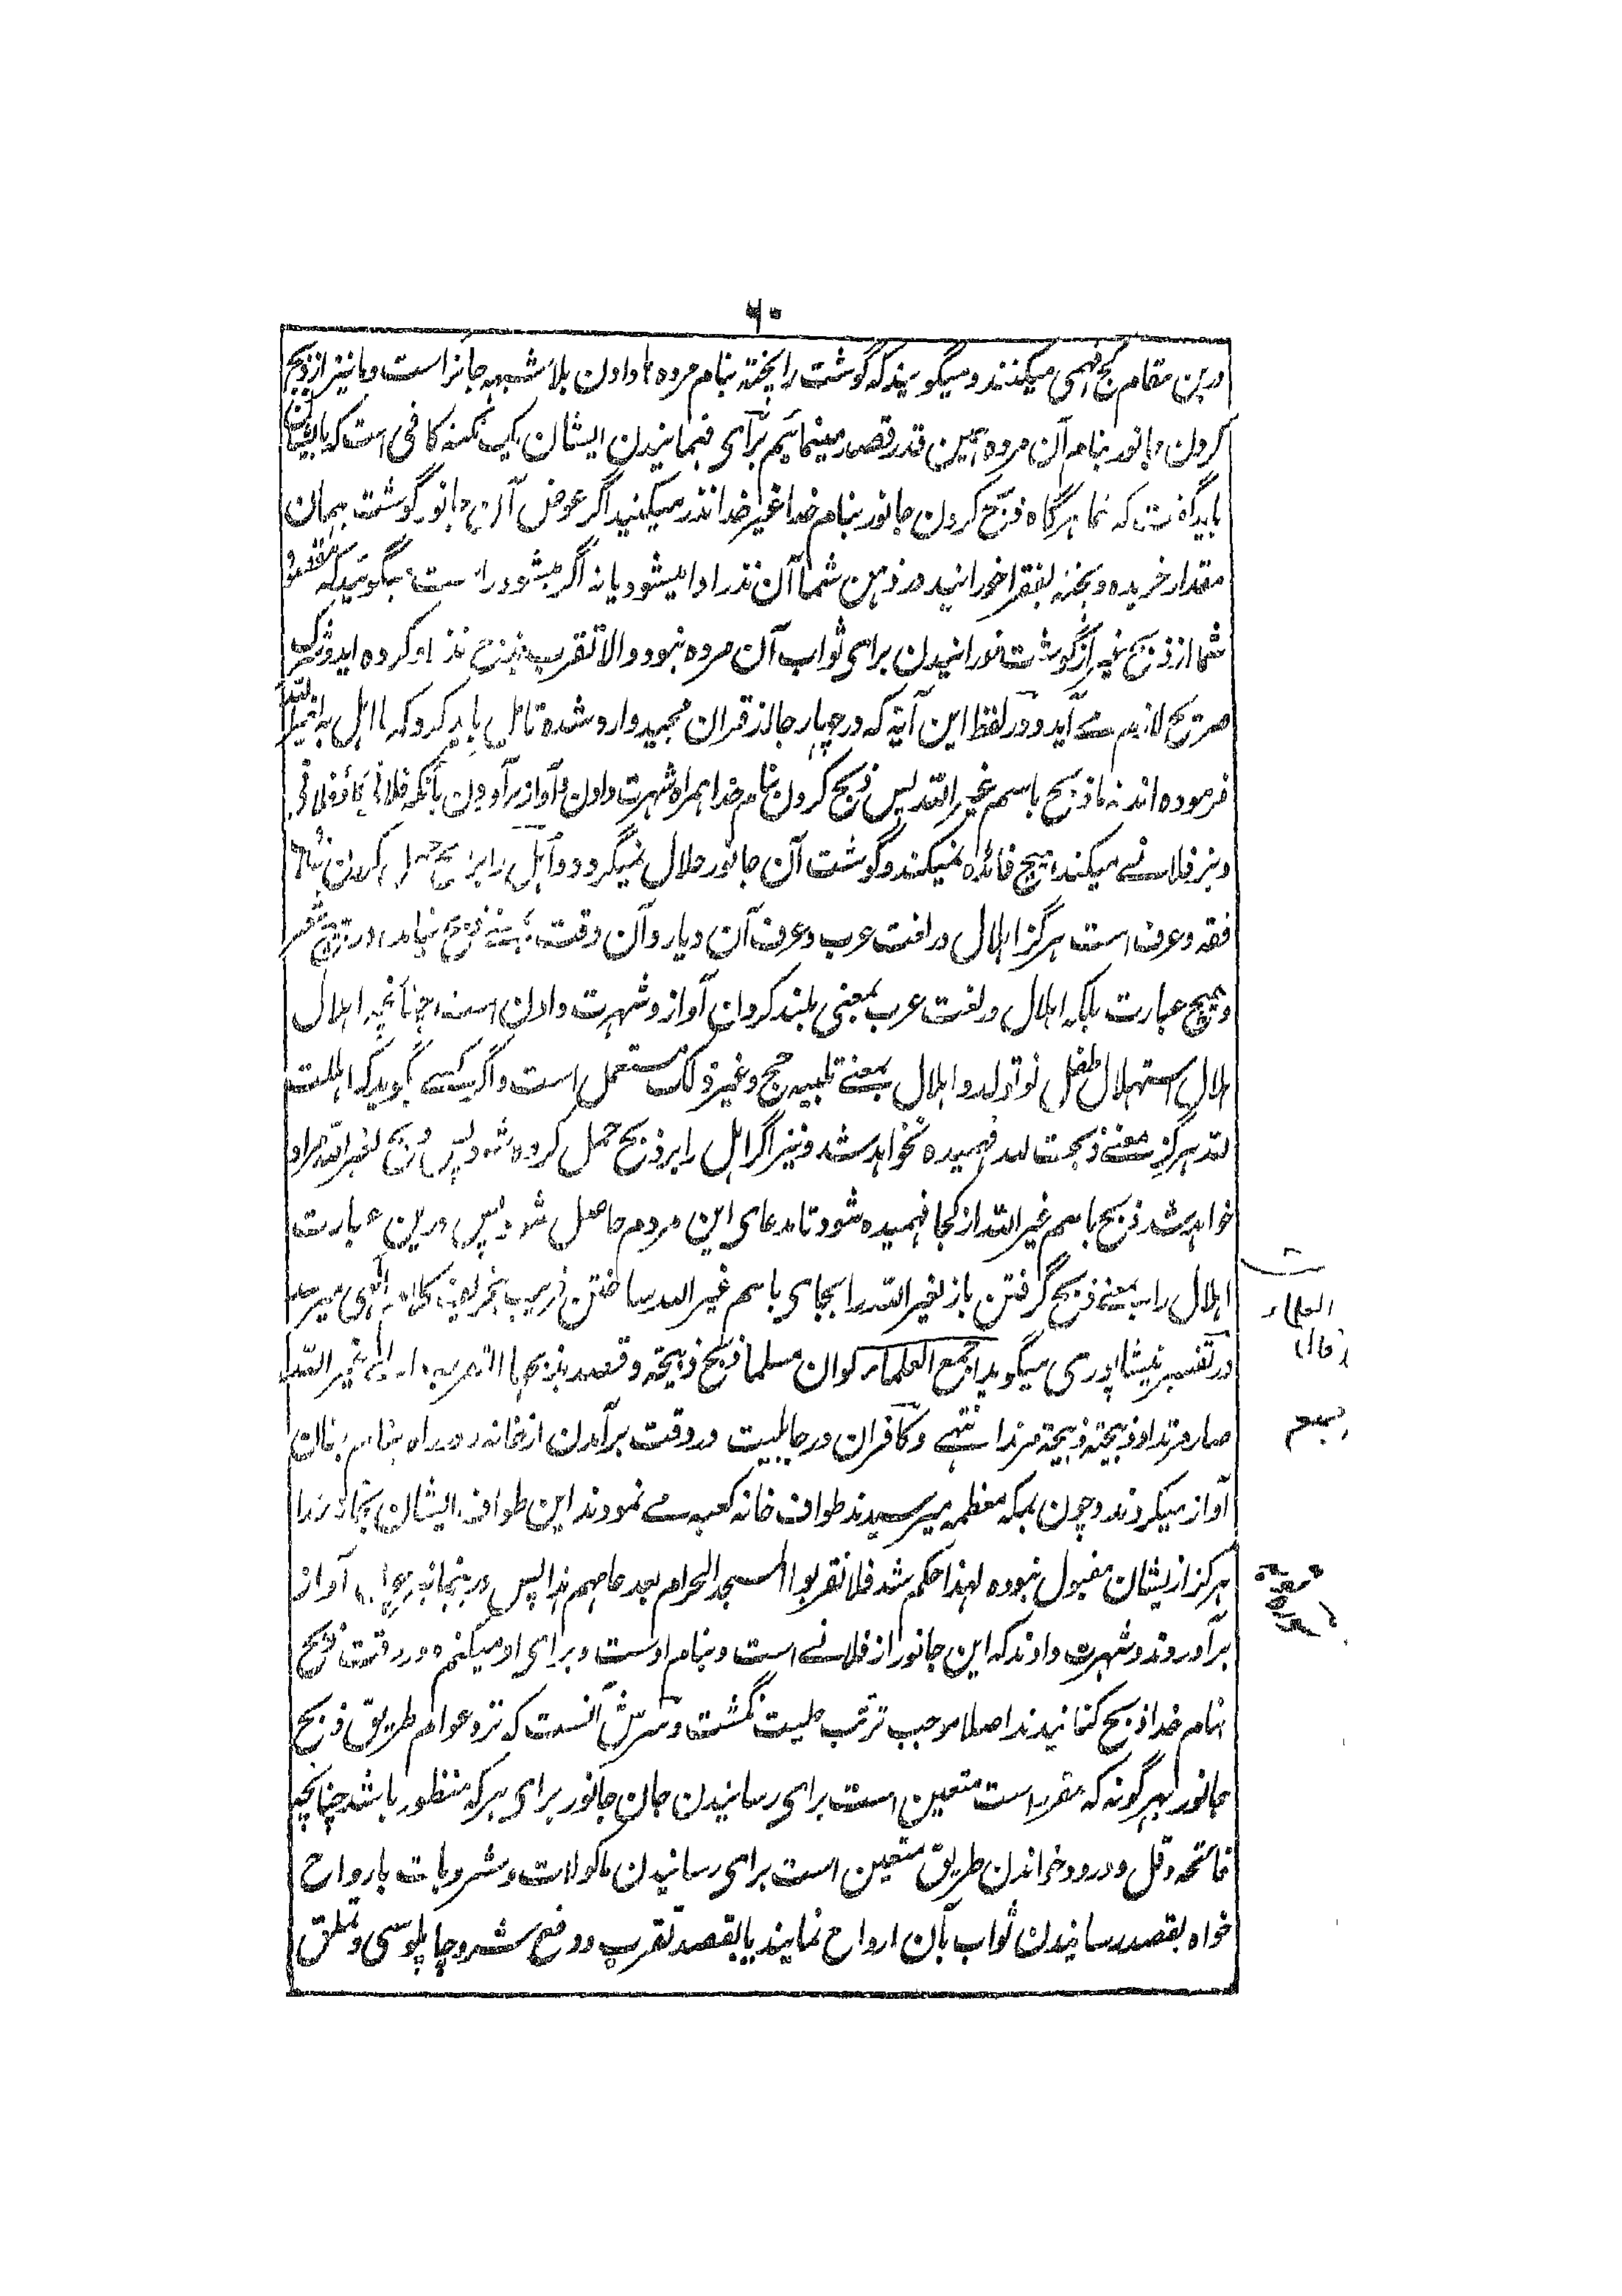 ۶۰
درین مقام کج فهمی میکنند و میگویند که گوشت را پخته بنام مرده ها دادن بلا شبهه جائز است و ما نیز از ذبح
کردن جانور بنام آن مرده همین قدر قصد مینمائیم برای فهمانیدن ایشان یک نکته کافی است که بایشان
باید گفت که شما هرگاه ذبح کردن جانور بنام خدا غیر خدا نذر میکنید اگر عوض آن جانور گوشت بهمان
مقدار خریده و پخته بفقرا خورانید در ذهن شما آن نذر ادا میشود یا نه اگر میشود راست میگوئید که مقصود
شما از ذبح غیر از گوشت خورانیدن برای ثواب آن مرده نبود و الا تقرب بذبح نذر او کرده اید و شرک
صریح لازم مے آید و در لفظ این آیه که در چهار جا از قران مجید وارد شده تامل باید کرد که ما اهل به لغیر الله
فرموده اند نه ما ذبح باسم غیر الله پس ذبح کردن بنام خدا همراه شهرت دادن و آواز برآوردن بآنکه فلانی گاؤ فلانی
و بز فلانے میکند هیچ فائده نمیکند و گوشت آن جانور حلال نمیگردد و اهل را بر ذبح حمل کردن خلاف
فقه و عرف است هرگز اهلال در لغت عرب و عرف آن دیار و آن وقت بمعنے ذبح نیامده در هیچ شعر
و هیچ عبارت بلکه اهلال در لغت عرب بمعنی بلند کردن آواز و شهرت دادن است چنانچه اهلال
هلال استهلال طفل نو تولد و اهلال بمعنے تلبیه حج و غیر ذلک مستعمل است و اگر کسے گوید که اهللت
لله هرگز معنے ذبحت لله فهمیده نخواهد شد و نیز اگر اهل را بر ذبح حمل کرده شود پس ذبح لغیر الله مراد
خواهد شد ذبح باسم غیر الله از کجا فهمیده شود تا مدعای این مردم حاصل شود پس درین عبارت
اهلال را بمعنے ذبح گرفتن باز لغیر الله را بجای باسم غیر الله ساختن قریب بتحریف کلام الهی میرسد
در تفسیر نیشاپوری میگوید اجمع العلماء لو ان مسلما ذبح ذبیحة و قصد بذبحها التقرب الی غیر الله
صار مرتدا و ذبیحته ذبیحة مرتد انتهے و کافران در جاهلیت در وقت برآمدن از خانه در راه بنام بتان
آواز میکردند و چون بمکه معظمه میرسیدند طواف خانه کعبه مے نمودند این طواف ایشان بخانه خدا
هرگز از یشان مقبول نبوده لهذا حکم شد فلا تقربوا المسجد الحرام بعد عامهم هذا پس در ینجا نیز چون آواز
برآوردند و شهرت دادند که این جانور از فلانے است و بنام اوست و برای او میکنم و در وقت ذبح
بنام خدا ذبح کنانیدند اصلا موجب ترتب حلیت نگشت و سرش آنست که نزد عوام طریق ذبح
جانور بهر گونه که مقرر است متعین است برای رسانیدن جان جانور برای هر که منظور باشد چنانچه
فاتحه و قل و درود خواندن طریق متعین است برای رسانیدن ماکولات و مشروبات بارواح
خواه بقصد رسانیدن ثواب بآن ارواح نمایند یا بقصد تقرب و دفع شر و چاپلوسی و تملق
العلماء
قال